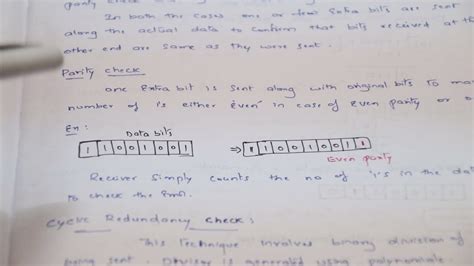 parity check and
In both the cases one or few Extra bits are sent
along the actual data to confirm that bits received at the
other end are same as they were sent.
Parity check
one Extra bit is sent along with original bits to
number of 1's either Even in case of Even parity or
Ex: Data bits
1 1001001 ⇒ 1 1001001 1
Even parity
Reciver simply counts the no of '1's in the
to check the
Cyclic Redundancy check:
This Technique involves binary division of
being sent. Divisor is generated using polynomials